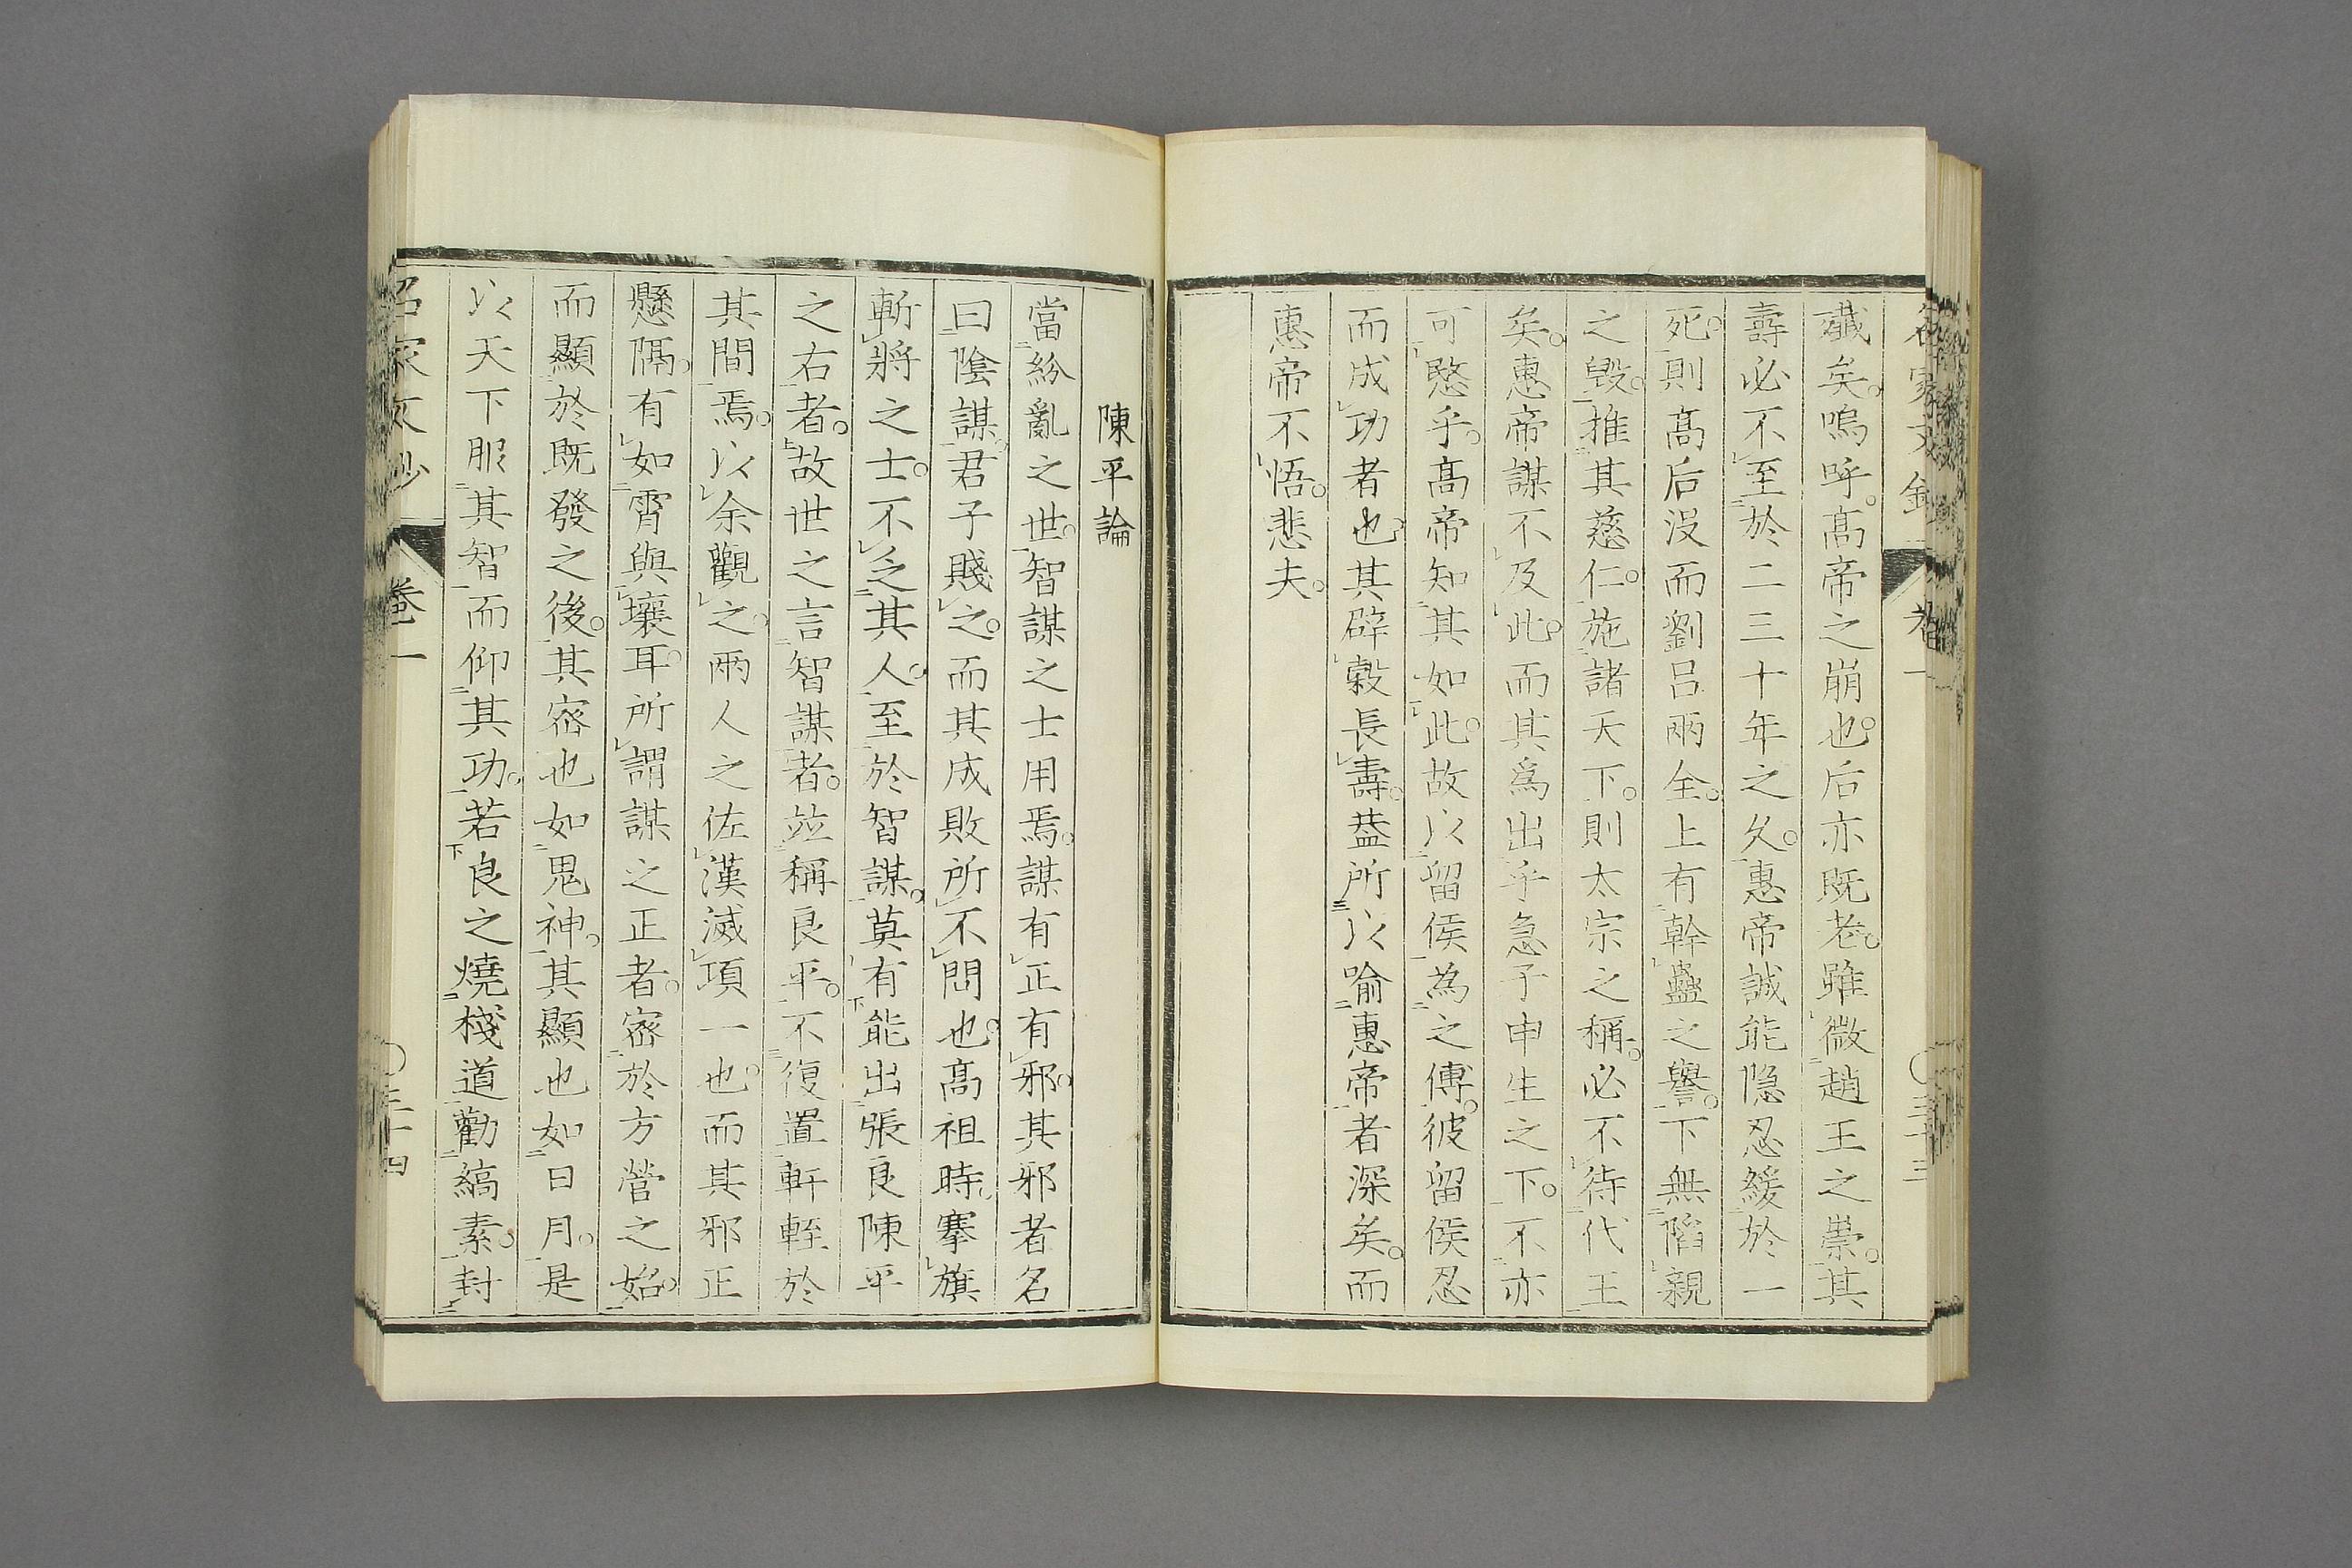 殲矣。嗚呼。高帝之崩也。后亦既老。雖微趙王之祟。其
壽必不至於二三十年之久。惠帝誠能隱忍緩於一
死。則高后沒而劉呂兩全。上有幹蠱之譽。下無陷親
之毀。推其慈仁。施諸天下。則太宗之稱。必不待代王
矣。惠帝謀不及此。而其為出乎急子申生之下。不亦
可愍乎。高帝知其如此。故以留侯為之傅。彼留侯忍
而成功者也。其辟穀長壽。蓋所以喻惠帝者深矣。而
惠帝不悟。悲夫。
陳平論
當紛亂之世。智謀之士用焉。謀有正有邪。其邪者名
曰陰謀。君子賤之。而其成敗所不問也。高祖時。搴旗
斬將之士。不乏其人。至於智謀。莫有能出張良陳平
之右者。故世之言智謀者。竝稱良平。不復置軒輊於
其間焉。以余觀之。兩人之佐漢滅項一也。而其邪正
懸隔。有如霄與壤耳。所謂謀之正者。密於方營之始。
而顯於既發之後。其密也如鬼神。其顯也如日月。是
以天下服其智而仰其功。若良之燒棧道勸縞素。封
名家文抄
卷一
三十四